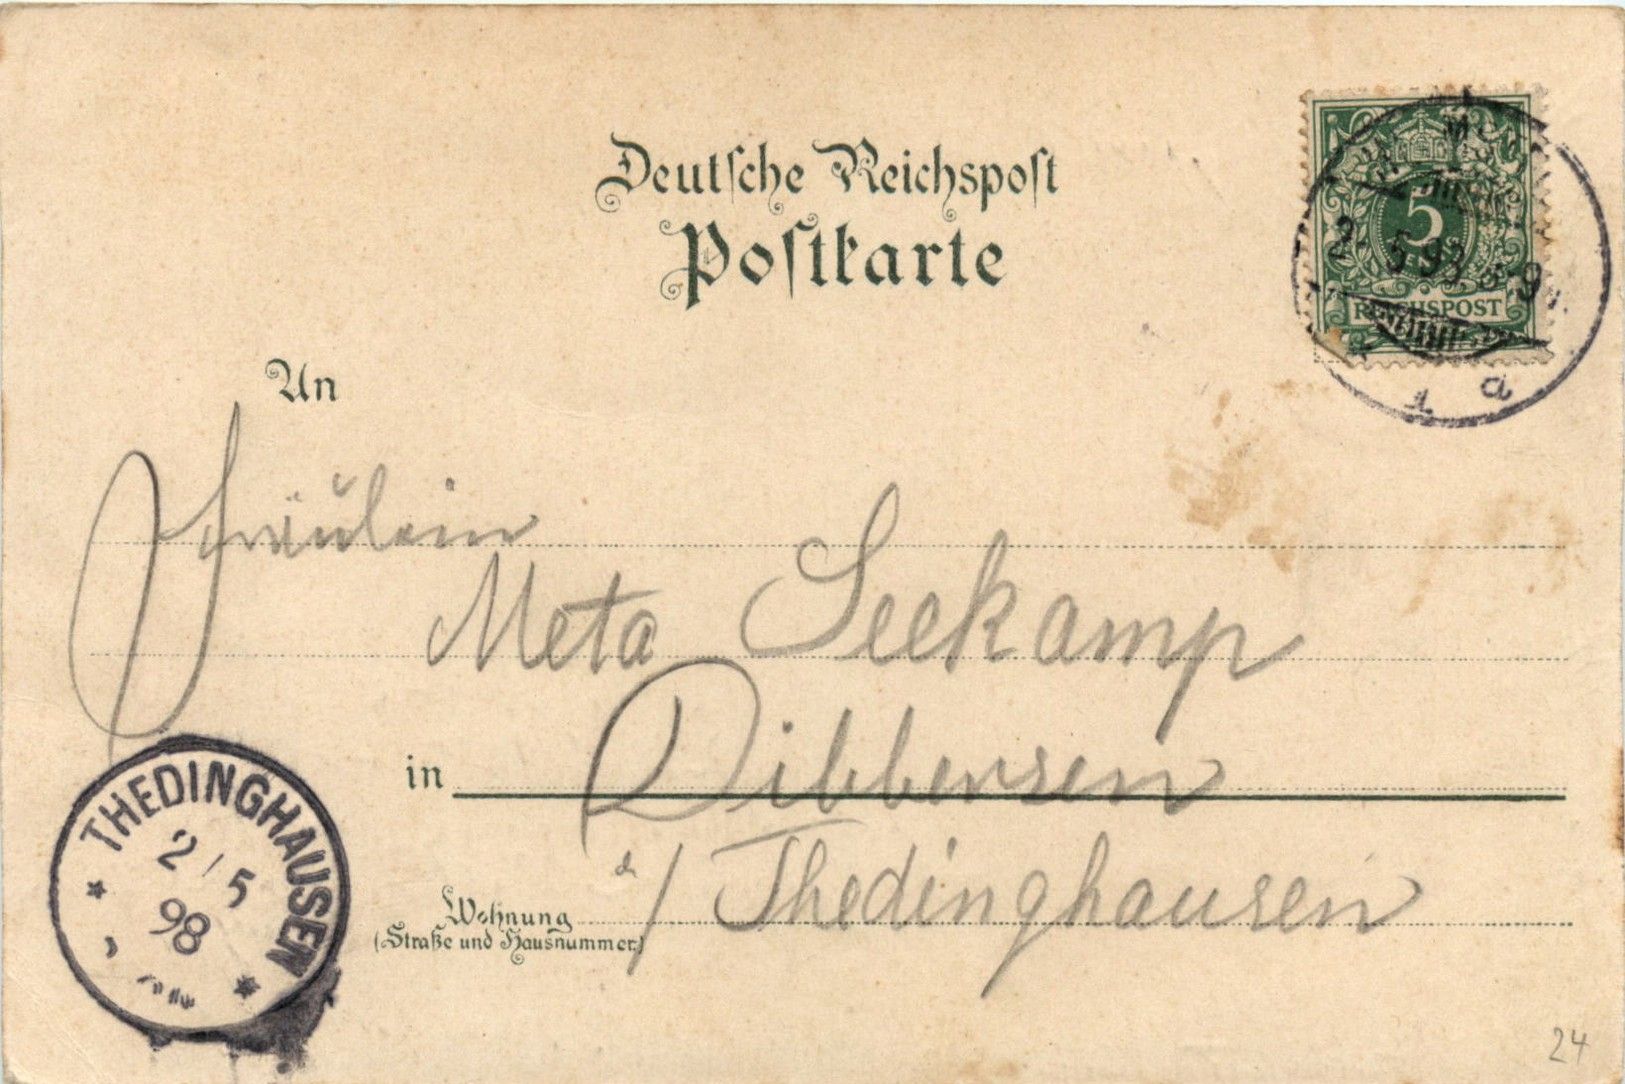 Deutsche Reichspost
Postkarte
5
REICHSPOST
2. 5.98. 8-9
1 a
An
Fräulein
Meta Seekamp
in Dibbersen
b/ Thedinghausen
Wohnung
(Straße und Hausnummer)
THEDINGHAUSEN
2/5
98
24